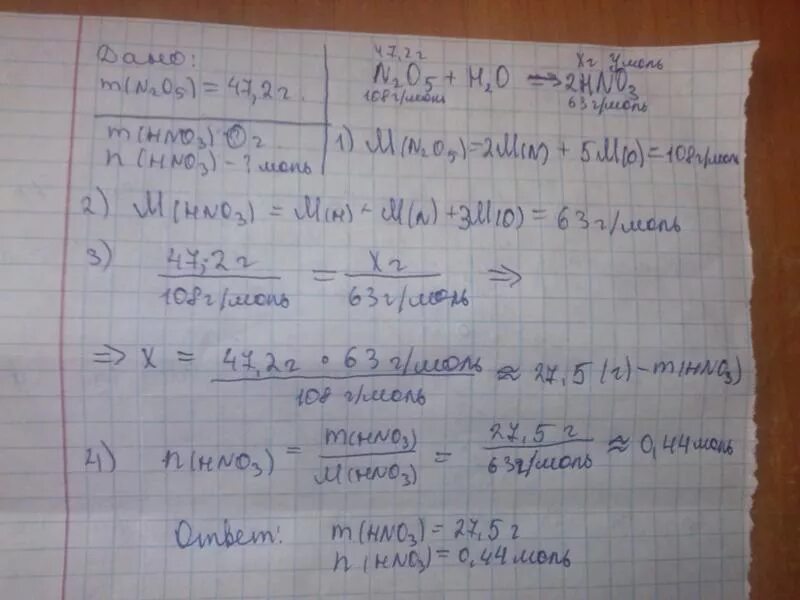 Дано:
m(N₂O₅) = 47,2 г.
m(HNO₃) г
n(HNO₃) - ? моль
47,2 г xг yмоль
N₂O₅ + H₂O => 2HNO₃
108 г/моль 63 г/моль
1) M(N₂O₅) = 2M(N) + 5M(O) = 108 г/моль
2) M(HNO₃) = M(H) - M(N) + 3M(O) = 63 г/моль
3) 47,2 г / 108 г/моль = xг / 63 г/моль =>
=> X = 47,2 г • 63 г/моль / 108 г/моль ≈ 27,5 (г) - m(HNO₃)
4) n(HNO₃) = m(HNO₃) / M(HNO₃) = 27,5 г / 63 г/моль ≈ 0,44 моль
Ответ: m(HNO₃) = 27,5 г
n(HNO₃) = 0,44 моль